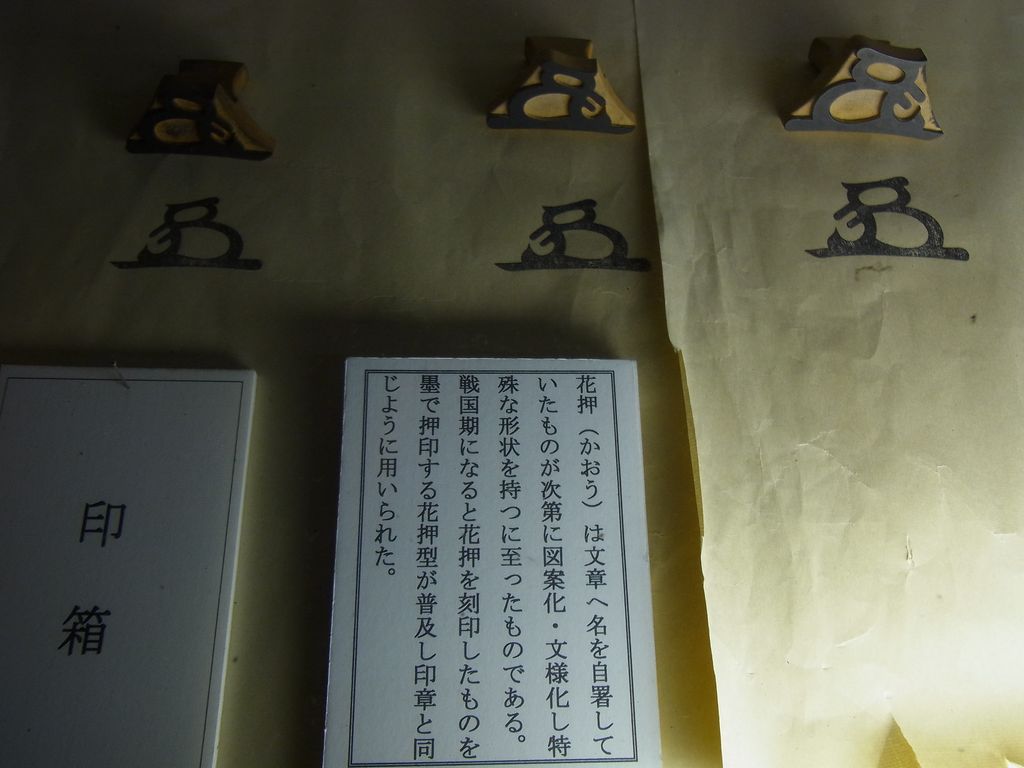 花押（かおう）は文章へ名を自署して
いたものが次第に図案化・文様化し特
殊な形状を持つに至ったものである。
戦国期になると花押を刻印したものを
墨で押印する花押型が普及し印章と同
じように用いられた。
印箱